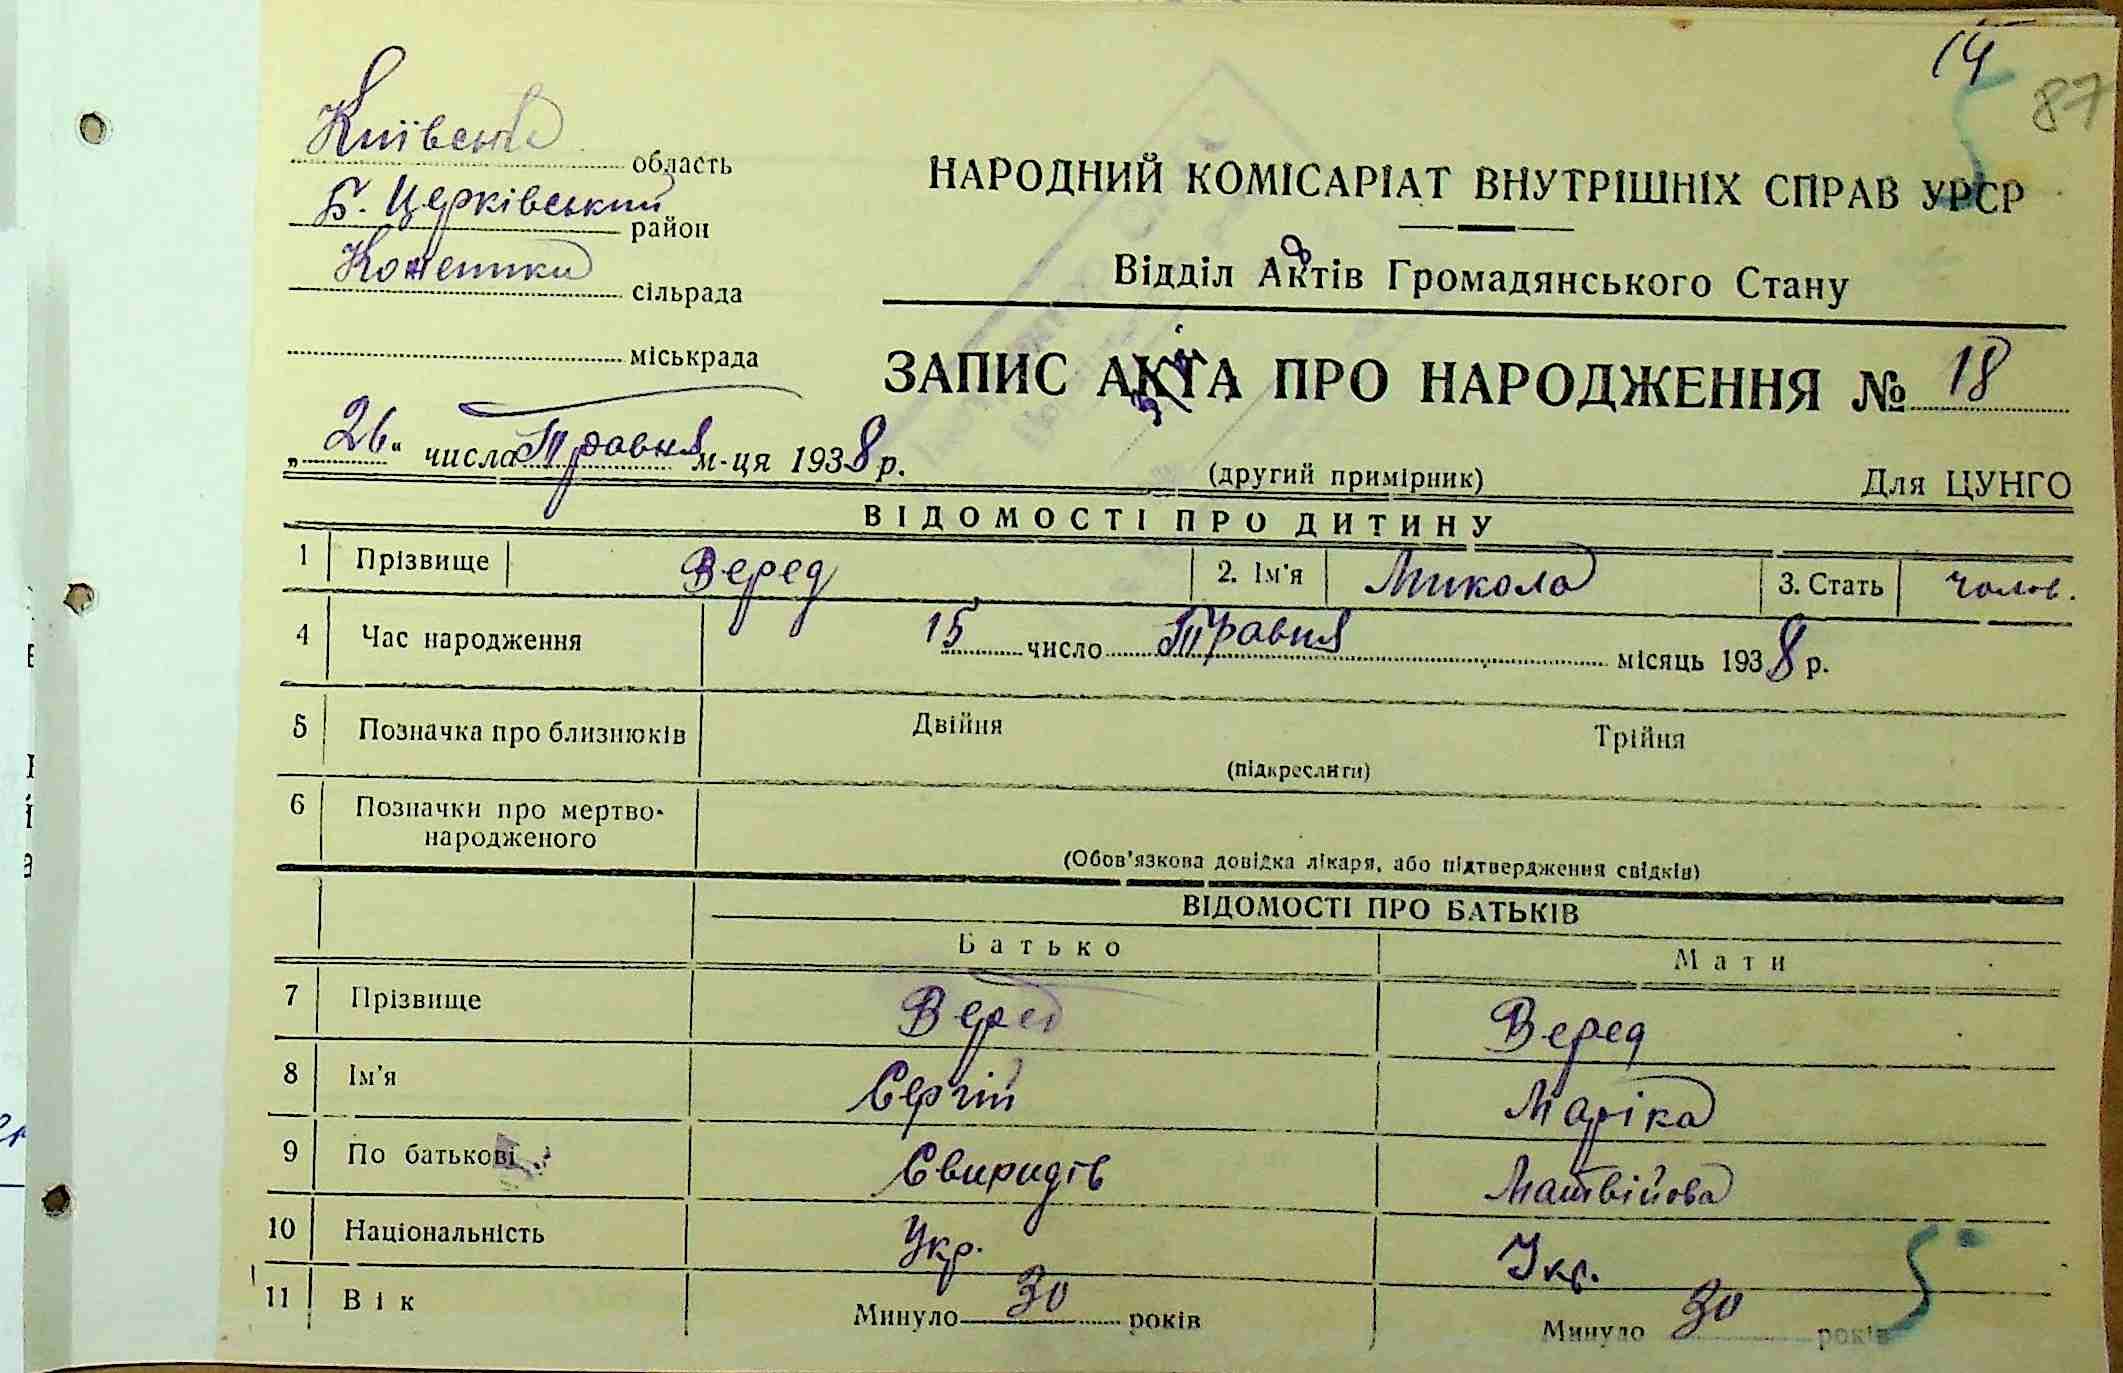 14
87
Київська область
Б. Церківський район
Коженики сільрада
міськрада
НАРОДНИЙ КОМІСАРІАТ ВНУТРІШНІХ СПРАВ УРСР
Відділ Актів Громадянського Стану
ЗАПИС АКТА ПРО НАРОДЖЕННЯ № 18
„26“ числа Травня м-ця 1938 р.
(другий примірник) Для ЦУНГО
ВІДОМОСТІ ПРО ДИТИНУ
1 Прізвище Веред 2. Ім'я Микола 3. Стать чолов.
4 Час народження 15 число Травня місяць 1938 р.
5 Позначка про близнюків Двійня Трійня
(підкреслити)
6 Позначки про мертво-
народженого
(Обов'язкова довідка лікаря, або підтвердження свідків)
ВІДОМОСТІ ПРО БАТЬКІВ
Батько Мати
7 Прізвище Веред Веред
8 Ім'я Сергій Маріка
9 По батькові Свиридів Матвійова
10 Національність Укр. Укр.
11 Вік Минуло 30 років Минуло 30 років
5